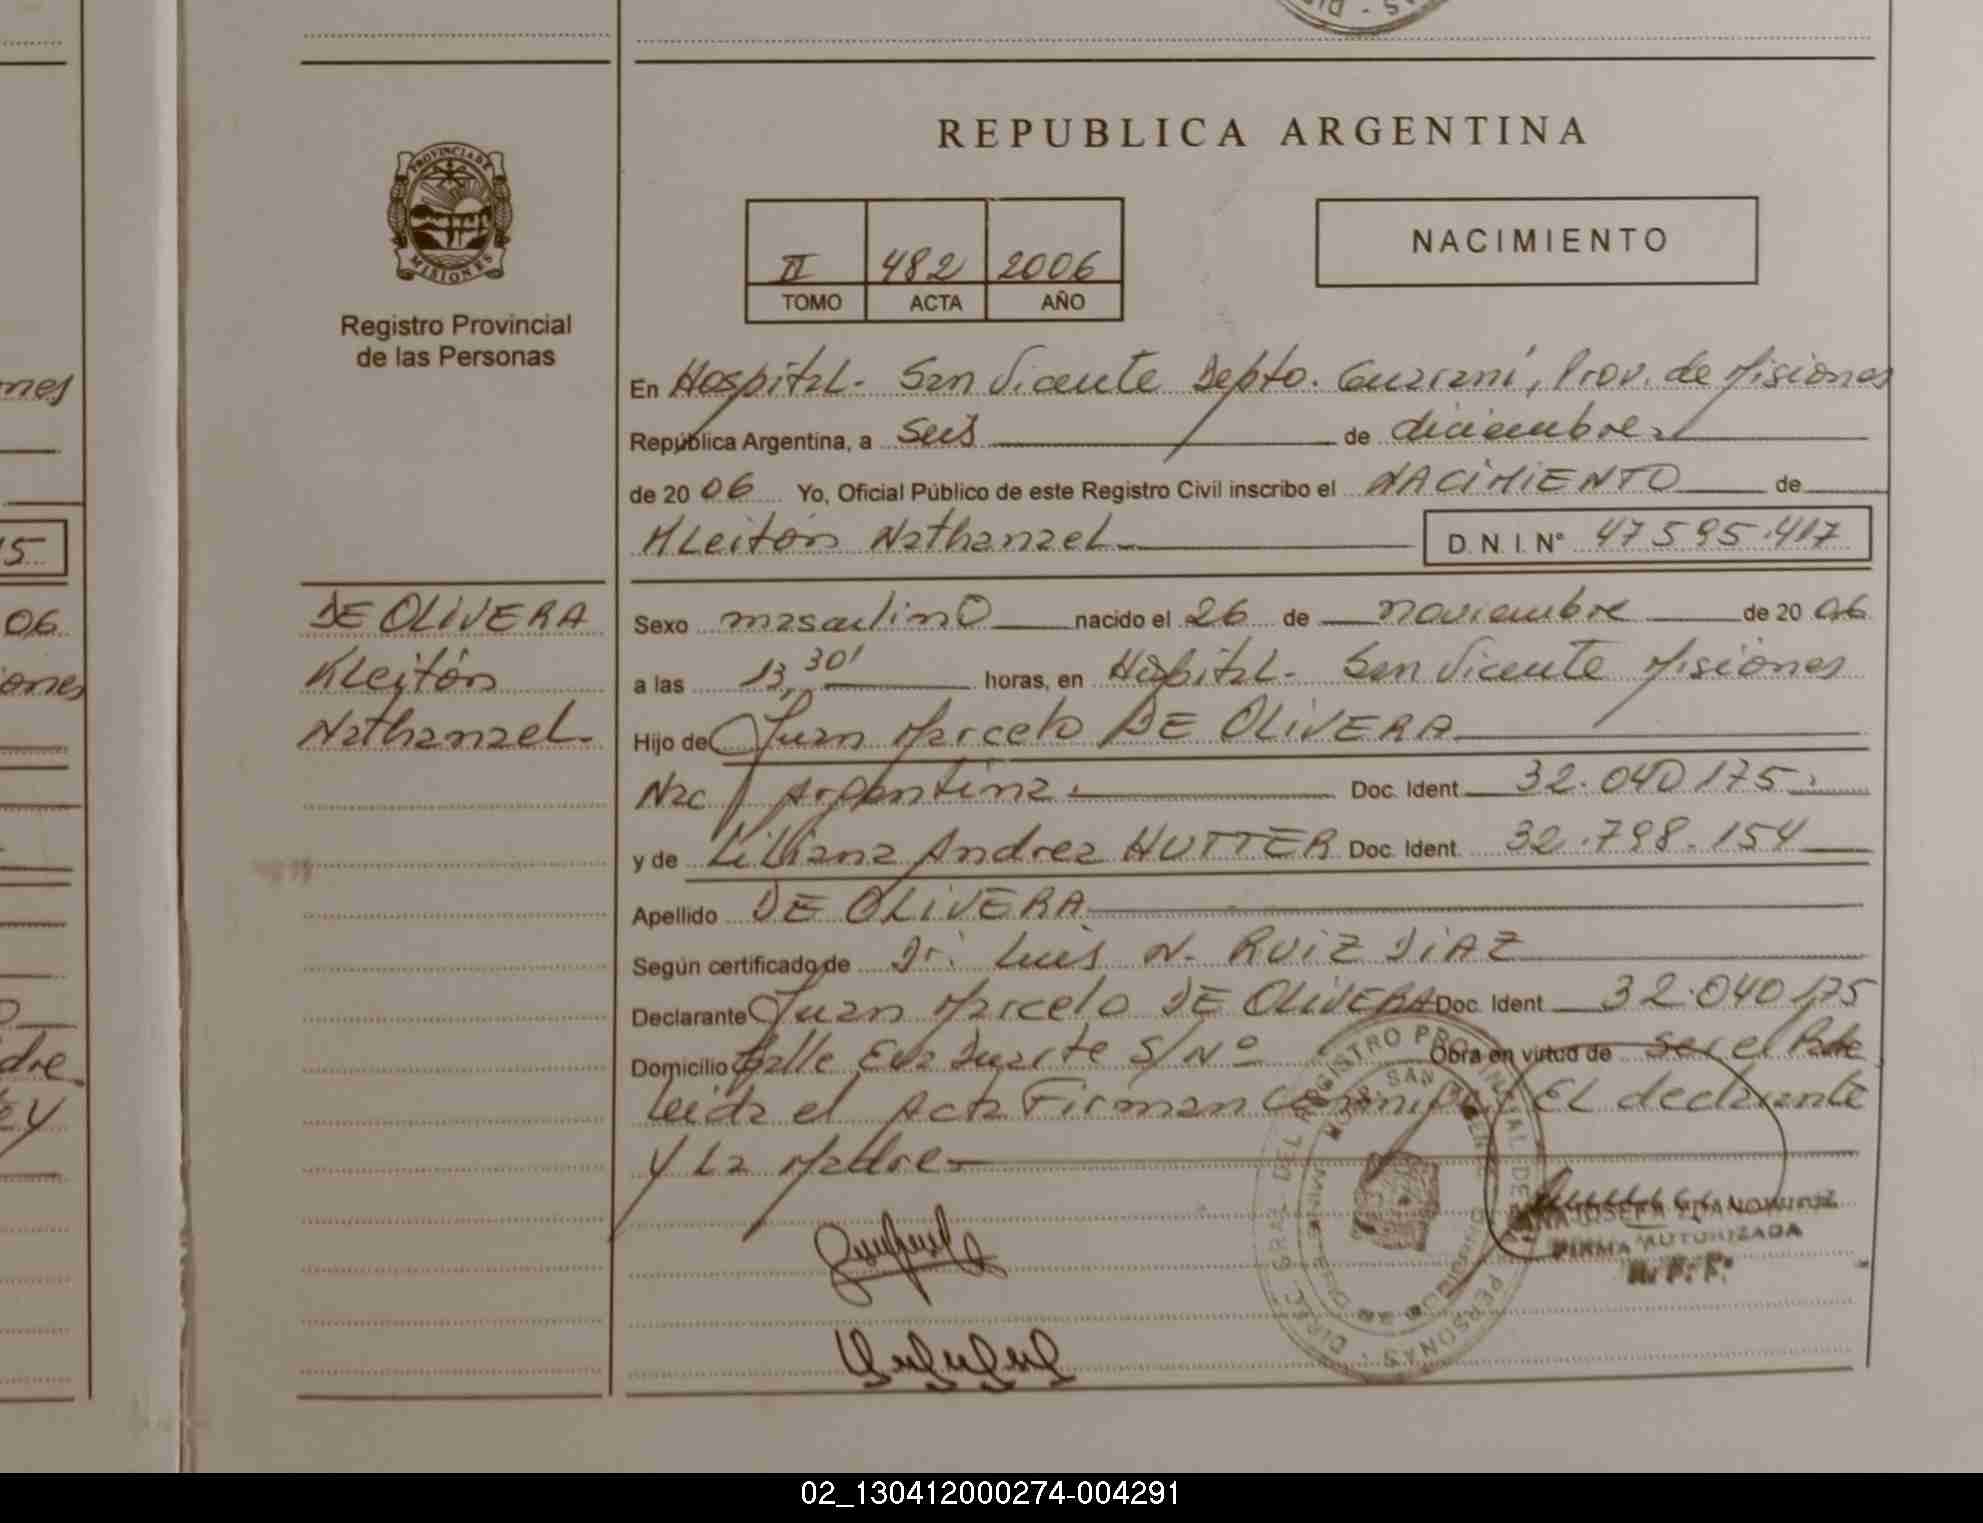 REPUBLICA ARGENTINA
PROVINCIA DE
MISIONES
Registro Provincial
de las Personas
II 482 2006
TOMO ACTA AÑO
NACIMIENTO
En Hospital - San Vicente Depto. Guaraní, Prov. de Misiones
República Argentina, a seis de diciembre
de 20 06 Yo, Oficial Público de este Registro Civil inscribo el NACIMIENTO de
Kleitón Nathanael D.N.I. N° 47595.417
DE OLIVERA
Kleitón
Nathanael
Sexo masculino nacido el 26 de noviembre de 20 06
a las 13,30' horas, en Hospital - San Vicente Misiones
Hijo de Juan Marcelo DE OLIVERA
Nac Argentina Doc. Ident 32.040.175
y de Liliana Andrea HUTTER Doc. Ident. 32.798.154
Apellido DE OLIVERA
Según certificado de Dr. Luis N. RUIZ DIAZ
Declarante Juan Marcelo DE OLIVERA Doc. Ident 32.040.175
Domicilio Calle Eva Duarte S/Nº Obra en virtud de ser el Padre
Leida el Acta Firman Conmigo El declarante
y La Madre
DIRC. GRAL. DEL REGISTRO PROVINCIAL DE PERSONAS
HOSP. SAN
FIRMA AUTORIZADA
nes
15
06
ones
dre
y
02_130412000274-004291